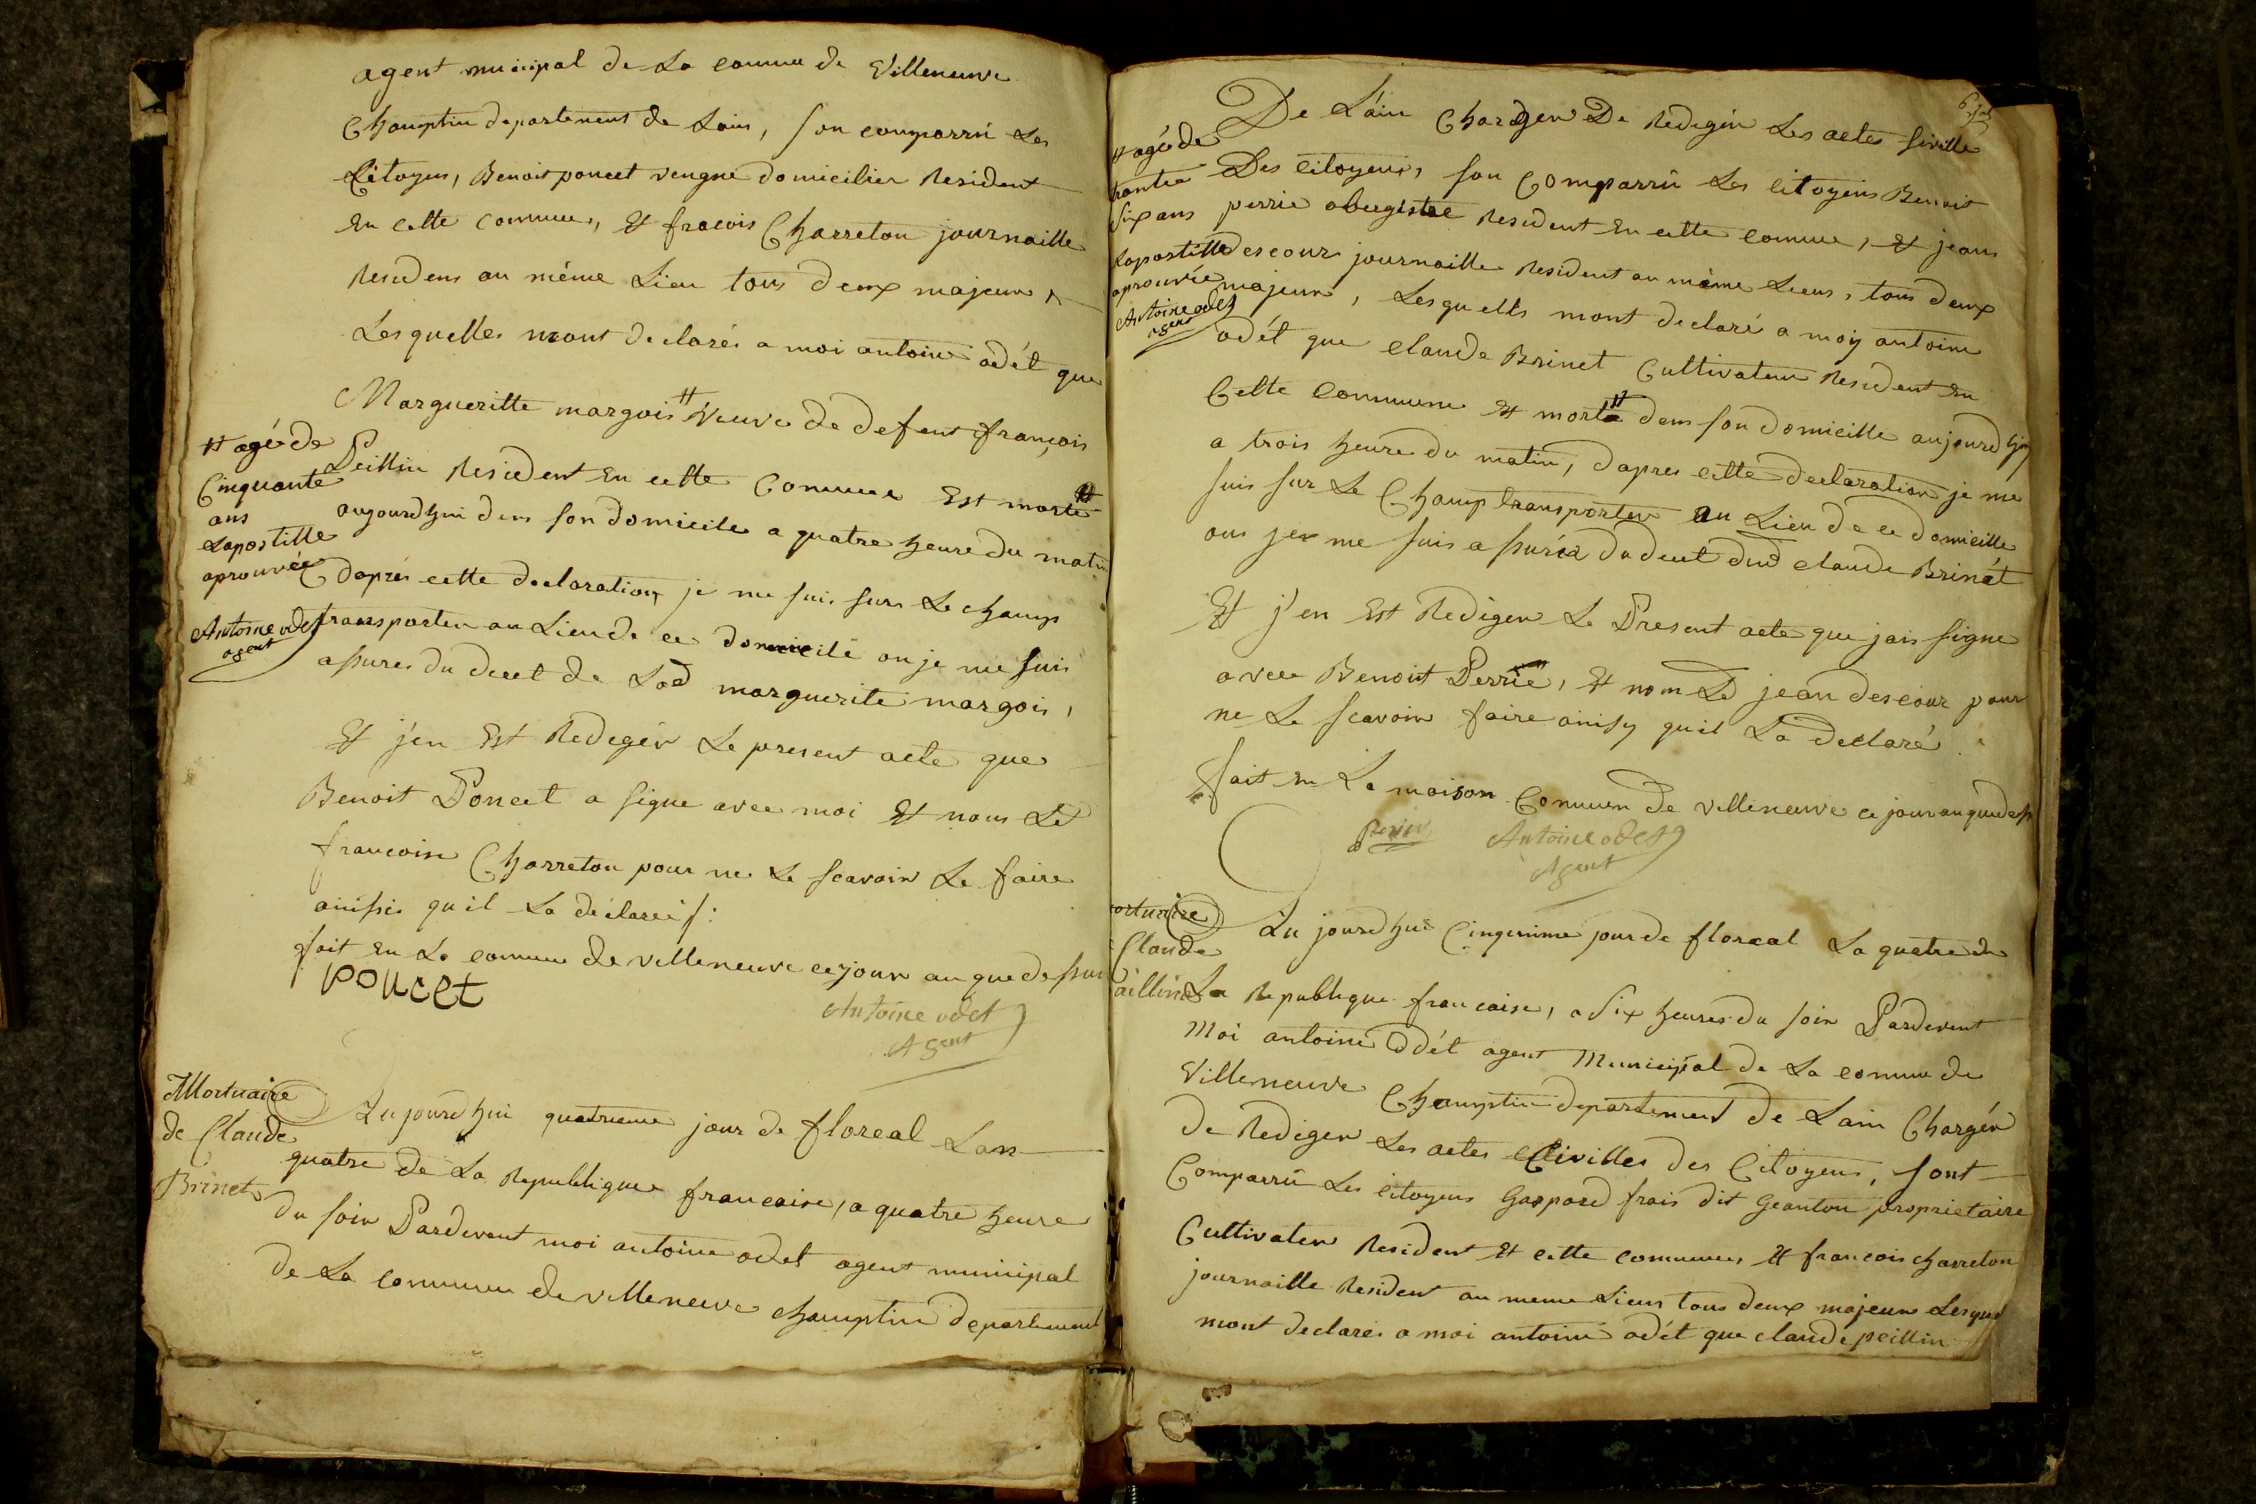 agent municipal de La commune de Villeneuve
Champtin departement de Lain, son comparru Les
Citoyens, Benoit poncet vengne domicilier Resident
en cette commune, Et fracois Charreton journaille
Residens au même Lieu tous deux majeur,
Lesquelles mont declarés a moi antoine odét que
Margueritte margois # veuve de defent françois
Peillin Resident en cette Commune Est morte
aujourdhui dens son domicile a quatre heure du matin
# agé de
Cinquante
ans
Lapostille
aprouvée
Antoine odet
agent
dapres cette declaration je me suis sure Le champ
transporter au Lieu de ce domicile ou je me suis
assures du decet de Lad marguerite margois,
Et j'en Est Redegér Le present acte que
Benoit Poncet a signe avec moi Et nous Led
francoise Charreton pour ne Le scavoir Le faire
ainssi qu'il La declareé :
fait en La comune de villeneuve ce jour an que dessus
poncet
Antoine odet
Agent
Mortuaire
de Claude
Brinet
Aujourdhui quatrieme jour de floreal Lan
quatre de La Republique francaise, a quatre heure
du soir Pardevent moi antoine odet agent municipal
de La commune de villeneuve champtin departement
De L'ain Charger De Redegér Les actes siville
Des citoyens, son Comparru Les citoyens Benoit
perrie obergiste Resident En cette comune, Et jean
descour journaille Resident au même Lieus, tous deux
majeur, Lesquells mont declaré a moy antoine
odét que claude Brinet Cultivateur Resident En
# agé de
trante
six ans
Lapostille
aprouvée
Antoine odet
agent
Cette Commune Et morte # dens son domicille aujourdhuy
a trois heure du matin, dapres cette declaration je me
suis sur Le Champ transporter au Lieu de ce domicille
ous jer me suis assuréa du decet dud claude Brinét
Et j'en Est Rediger Le Present acte que jais signe
avec Benoit Perrie, Et nom Led jean descour pour
ne Le scavoir faire ainsy quil La declaré
fait en La maison Commun de villeneuve ce jour an que dess
Perier
Antoine odet
Agent
ortuaire
Claude
aillin
Au jourdhui Cinquieme jour de floreal La quatre de
La Republique francaise, a six heures du soir Pardevent
Moi antoine odét agent Municipal de La comune de
Villeneuve Champtin departement de Lain Chargér
De Rediger Les actes Civilles des Citoyens, sont
Comparrû Les citoyens Gaspard frais dit Geanton proprietaire
Cultivater Resident Et cette commune, Et francois charreton
journaille Resident au meme Lieus tous deux majeure Lesquel
mont declarés a moi antoine odét que claude peillin